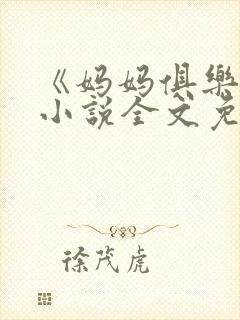 《妈妈俱乐
小说全文免
徐茂虎